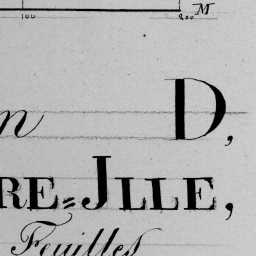 100 200 M
n D,
RE=JLLE,
Feuilles